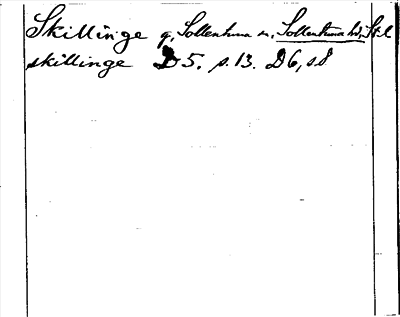 Skillinge g, Sollentuna sn, Sollentuna hd, St. l
skillinge D5. s.13. D6, s.8